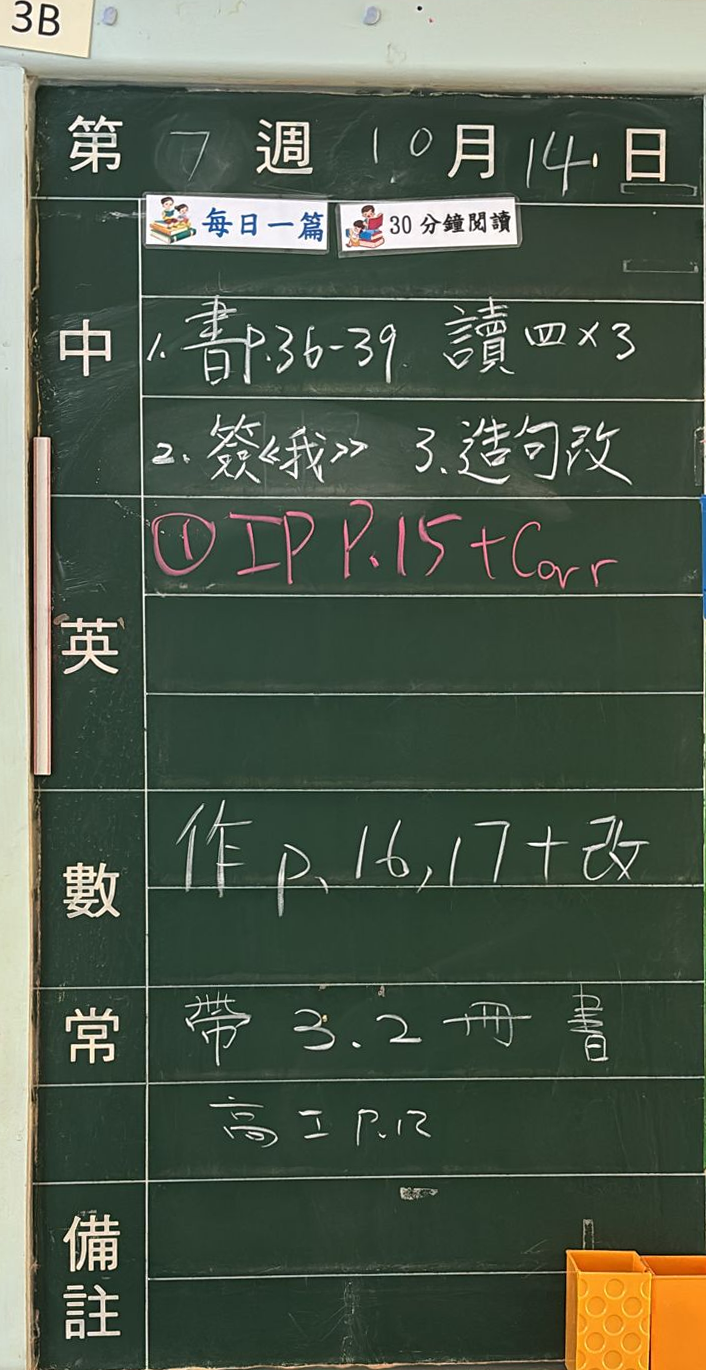 3B
第 7 週 10月14日
每日一篇 30分鐘閱讀
中 1. 書P.36-39 讀四×3
2. 簽《我》 3. 造句改
英 ① IP P.15 + Corr
數 作 p.16,17+改
常 帶 3.2 冊 書
高 工 P.12
備註